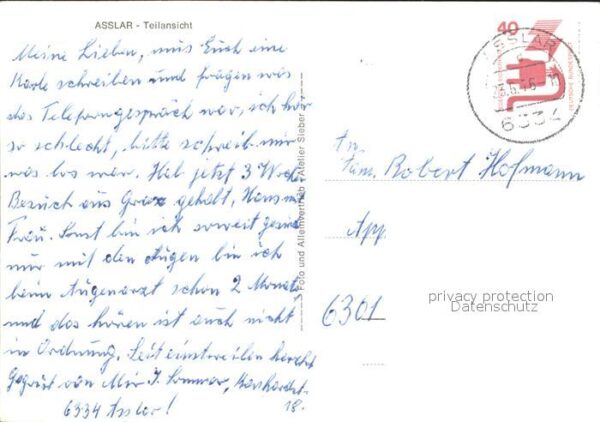 ASSLAR - Teilansicht
Meine Lieben, mus Euch eine
Karte schreiben und frägen was
das Telefongespräch war, ich hör
so schlecht, bitte schreib mir
was los war. Hab jetzt 3 Woch
Besuch aus Graz gehabt, Hans m
Frau. Sonst bin ich soweit
nur mit den Augen bin ich
beim Augenarzt schon 2 Monate
und das hören ist auch nicht
in Ordnung. Seit einstweilen herzlich
Gegrüst von Mir J. Sommer,
18.
6334 Asslar!
Foto und Alleinvertrieb: Atelier Sieber
40
ASSLAR
6334
DEUTSCHE BUNDESPOST
An
Fam. Robert Hofmann
App
6301
privacy protection
Datenschutz